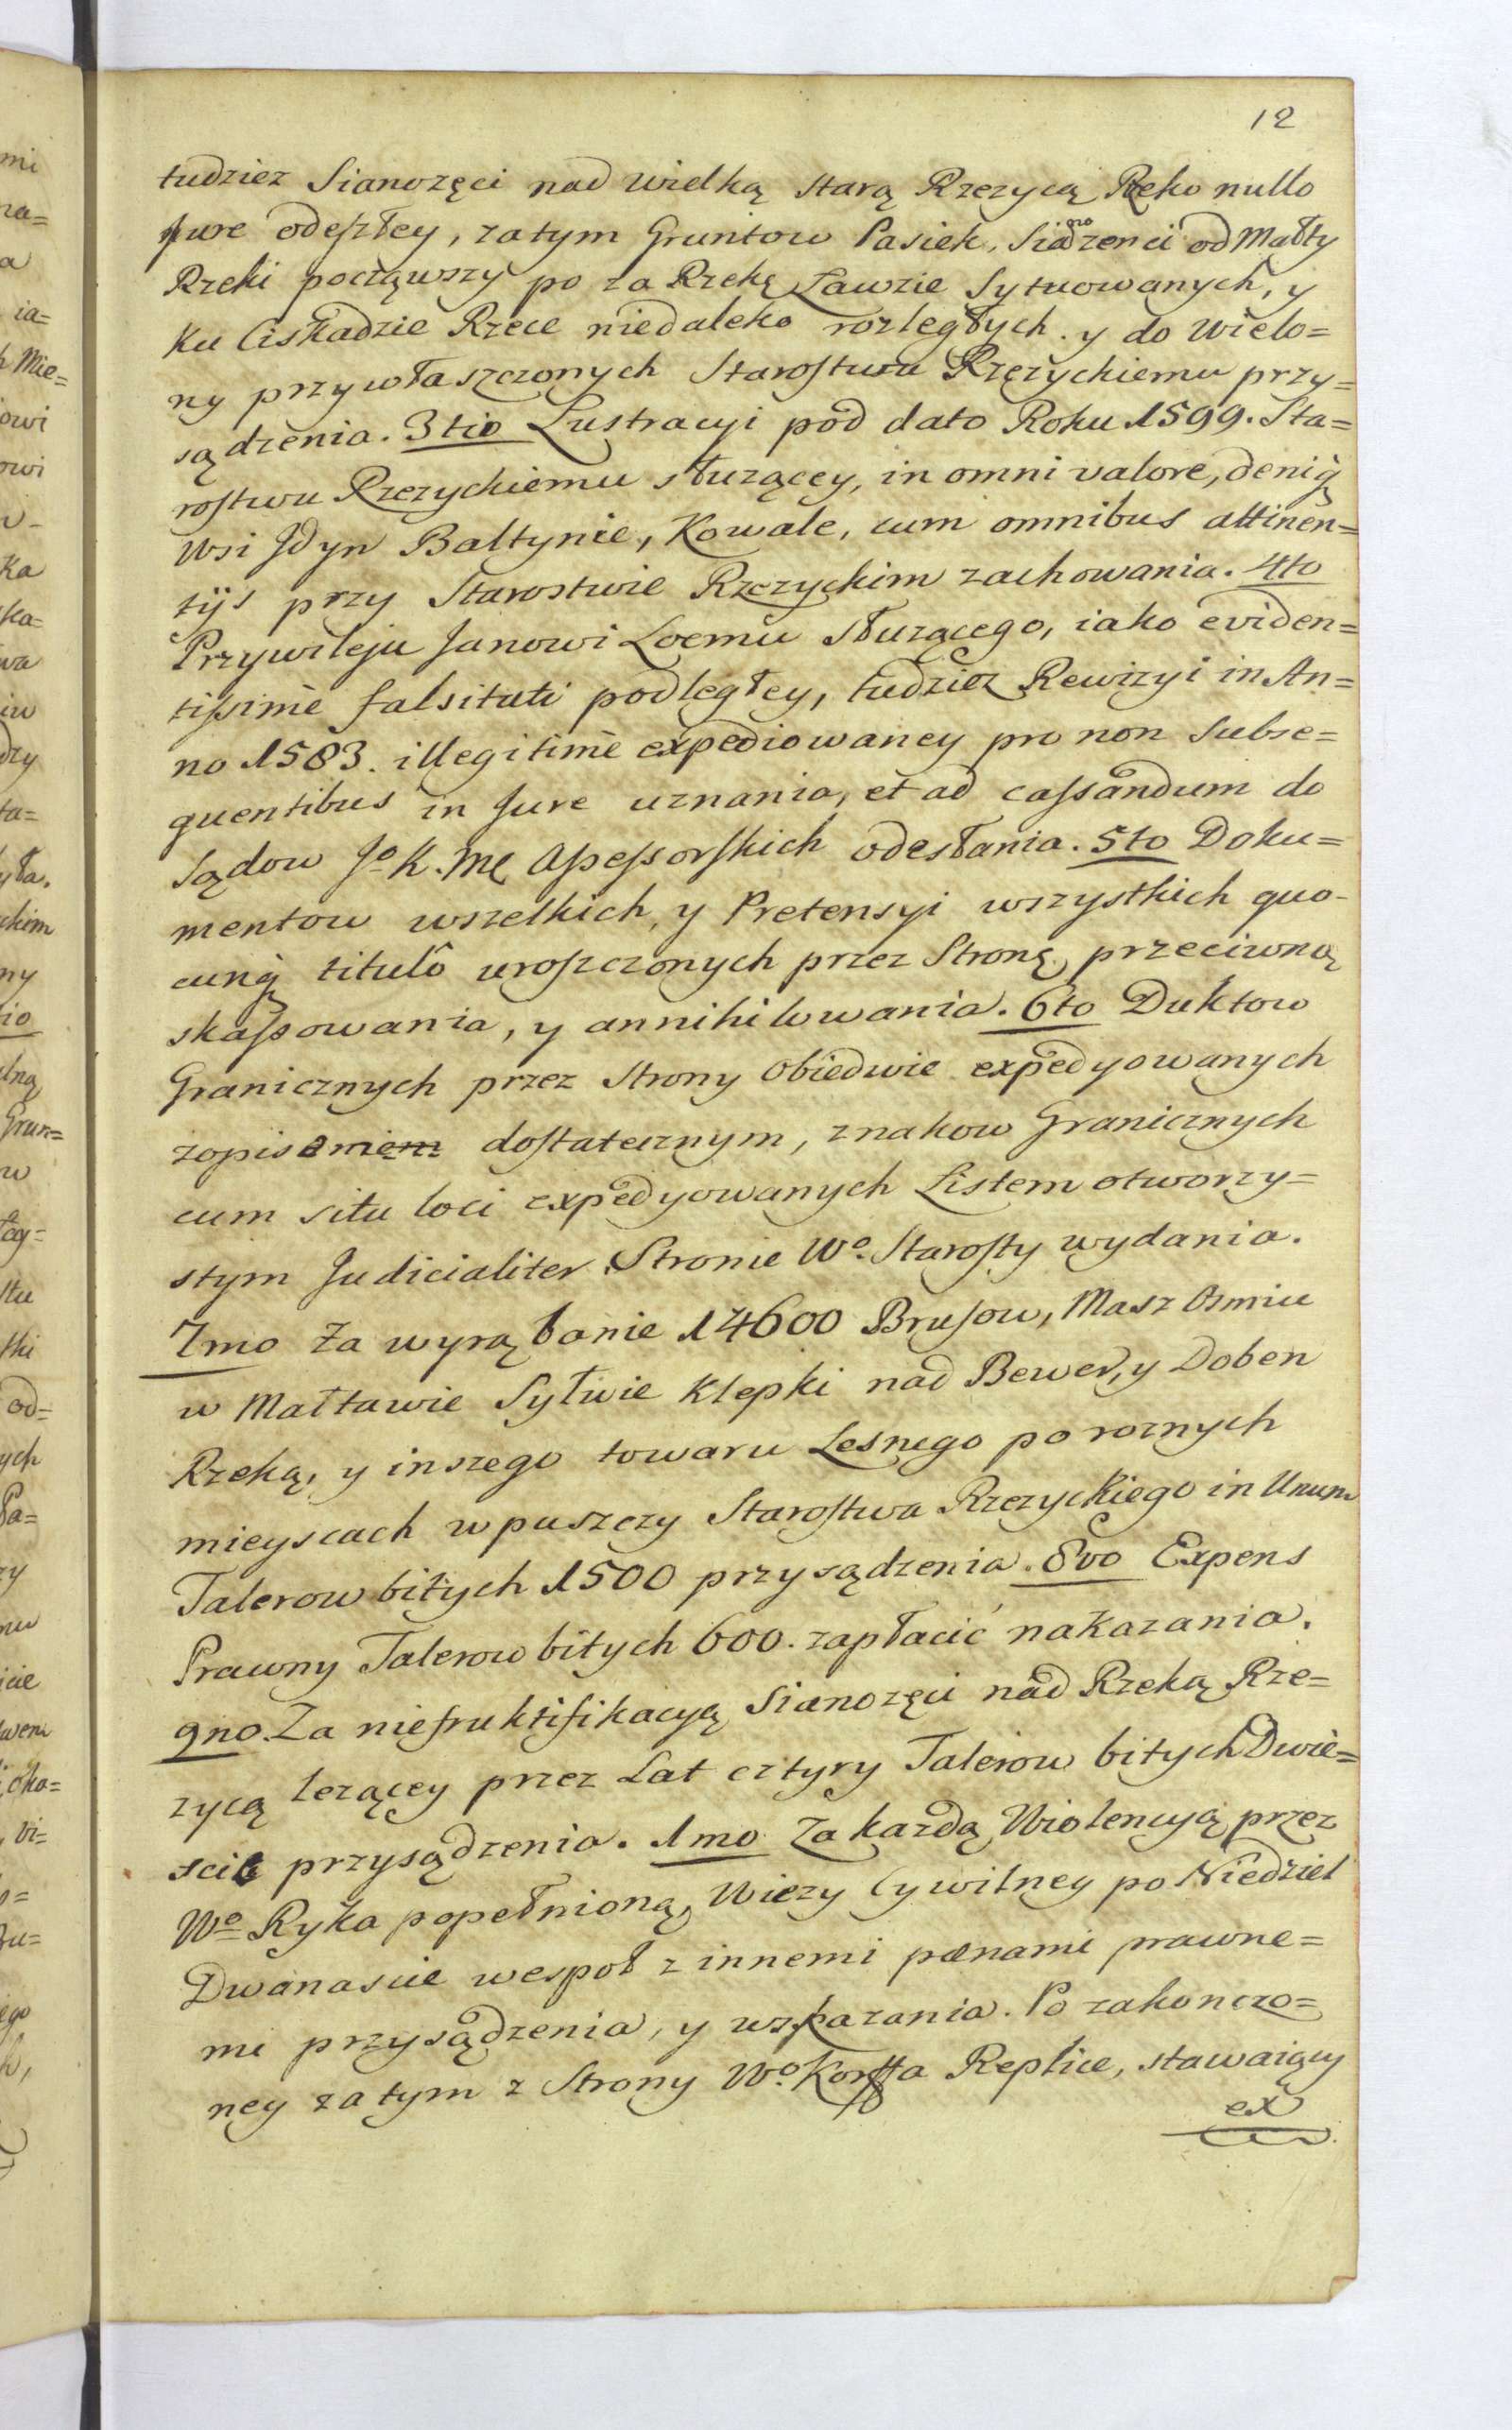 12
tudziez Sianozęci nad wielką starą Rzezycą Reko nullo
Jure odeszłey, zatym Gruntow Pasiek, Sianozenci od Małty
Rzeki począwszy po za Rzekę Lawzie Sytuowanych, y
Ku Ciskadzie Rzece niedaleko rozległych. y do Wielo=
ny przywłaszczonych Starostwu Rzęzyckiemu przy=
sądzenia. 3tio Lustracyi pod dato Roku 1599. Sta=
rostwu Rzezyckiemu słuzącey, in omni valore, deniq
Wsi Jdyn Baltynie, Kowale, cum omnibus attinen=
tijs przy Starostwie Rzezyckim zachowania. 4to
Przywileju Janowi Loemu słuzącego, iako eviden=
tissimè falsitati podległey, tudziez Rewizyi in An=
no 1583. illegitimè expediowaney pro non subse=
quentibus in Jure uznania, et ad cassandum do
Sądow Jo K. Mę Assessorskich odesłania. 5to Doku=
mentow wszelkich, y Pretensyi wszystkich quo-
cunq titulô uroszczonych przez Stronę przeciwną
skassowania, y annihilowania. 6to Duktow
Granicznych przez Strony obiedwie expedyowanych
zopisaniem dostatecznym, znakow Granicznych
cum situ loci expedyowanych Listem otworzy=
stym Judicialiter Stronie Wo Starosty wydania.
7mo Za wyrąbanie 14600 Brusow, Masz Osmiu
w Małtawie Syłwie Klepki nad Bewer, y Doben
Rzeką, y inszego towaru Lesnego po roznych
mieyscach w puszczy Starostwa Rzezyckiego in Unum
Talerow bitych 1500 przysądzenia. 8vo Expens
Prawny Talerow bitych 600. zapłacić nakazania.
9no. Za niefruktifikacyą Sianozęci nad Rzeką Rze=
zycą lezącey przez Lat cztyry Talerow bitych Dwie=
scie przysądzenia. 1mo Za kazdą Wiolencyą przez
Wo Ryka popełnioną, Wiezy Cywilney po Niedziel
Dwanascie wespoł z innemi pœnami prawne=
mi przysądzenia, y wskazania. Po zakonczo=
ney zatym z Strony Wo Korffa Replice, stawaiący
ex